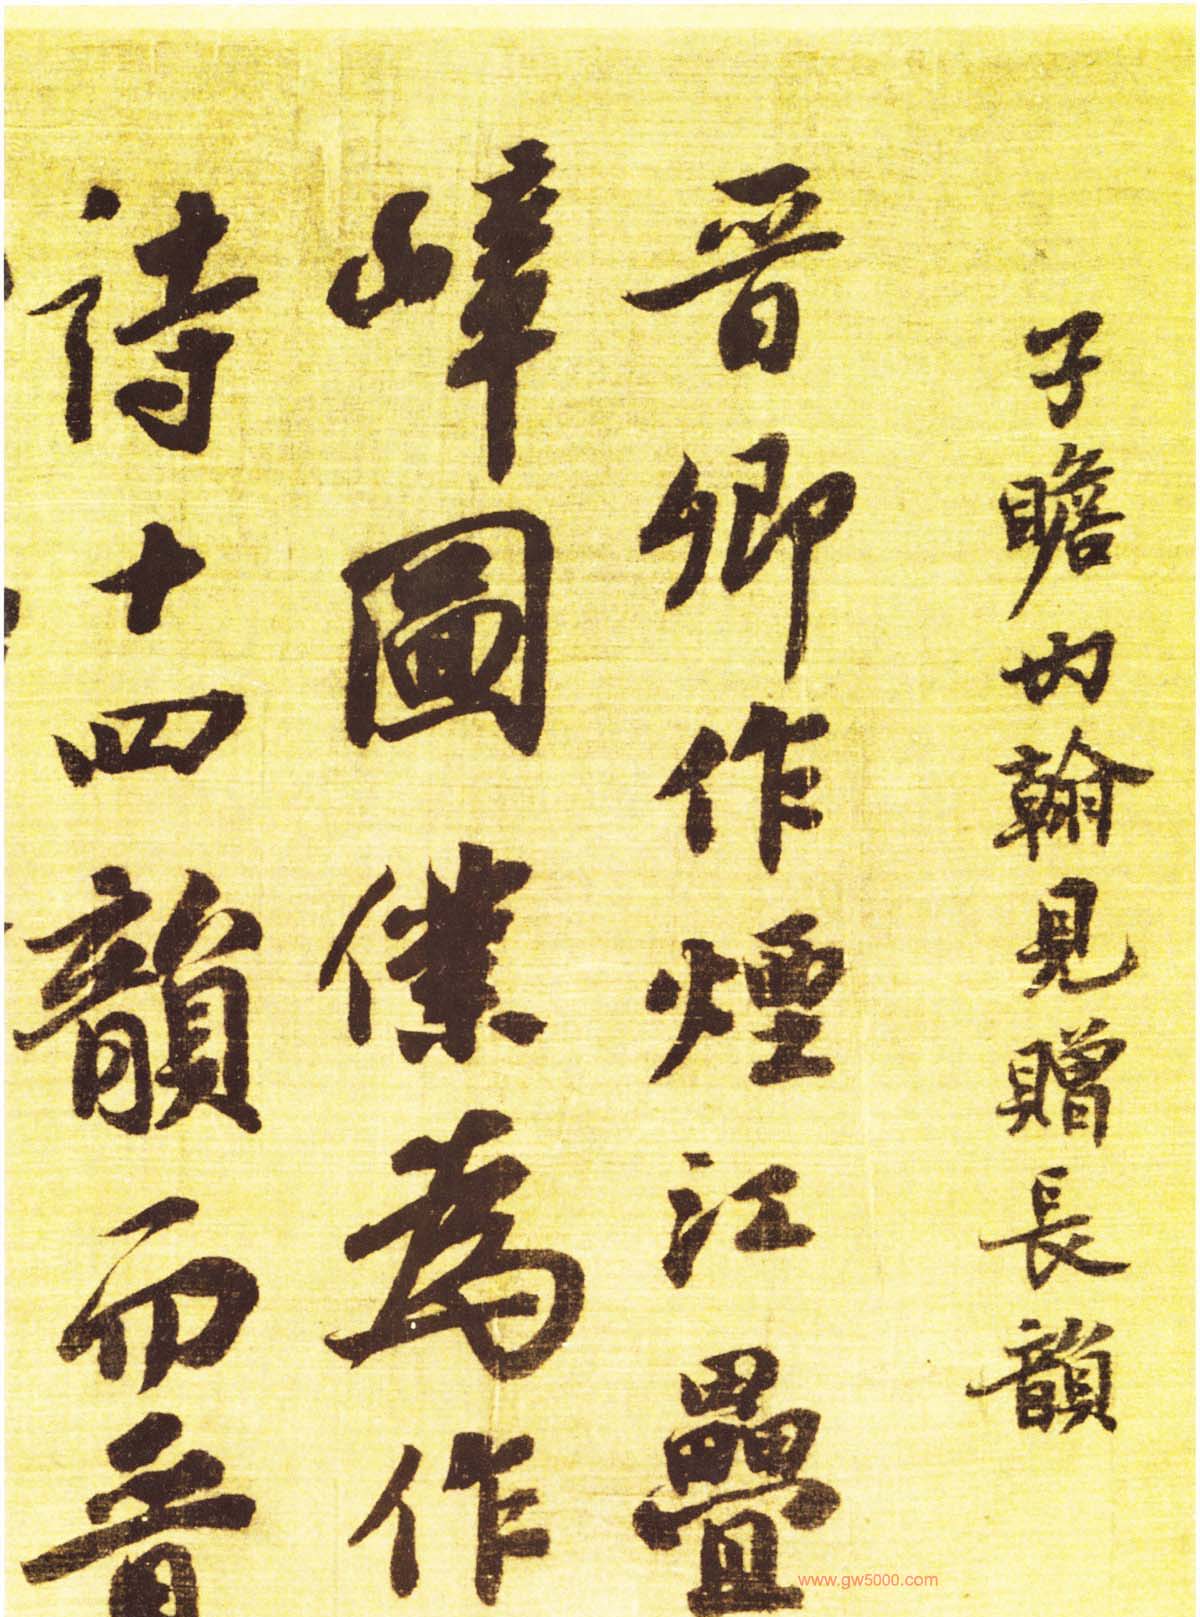 子瞻內翰見贈長韻
晋卿作煙江疊
嶂圖僕為作
詩十四韻而晋
www.gw5000.com